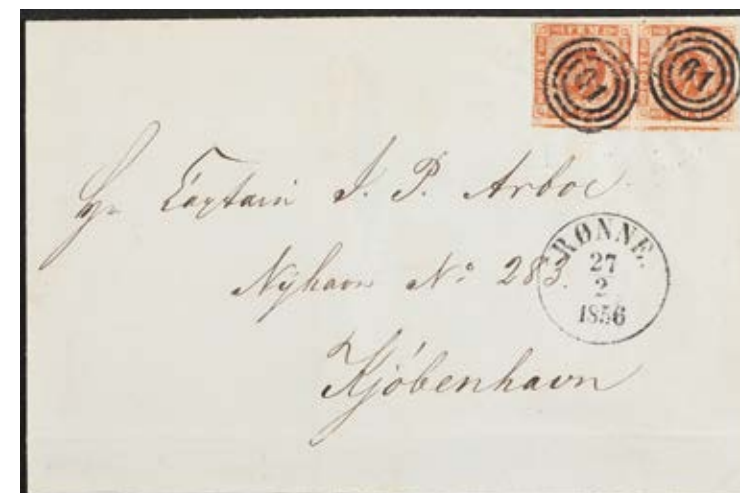 FRM
61
61
Hr. Captain J. P. Arboe
Nyhavn No 283.
Kjöbenhavn
RØNNE.
27
2
1856